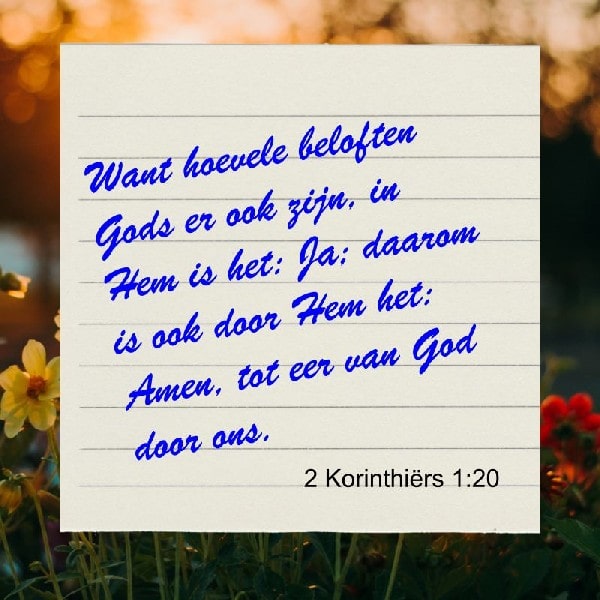 Want hoevele beloften
Gods er ook zijn, in
Hem is het: Ja; daarom
is ook door Hem het:
Amen, tot eer van God
door ons.
2 Korinthiërs 1:20